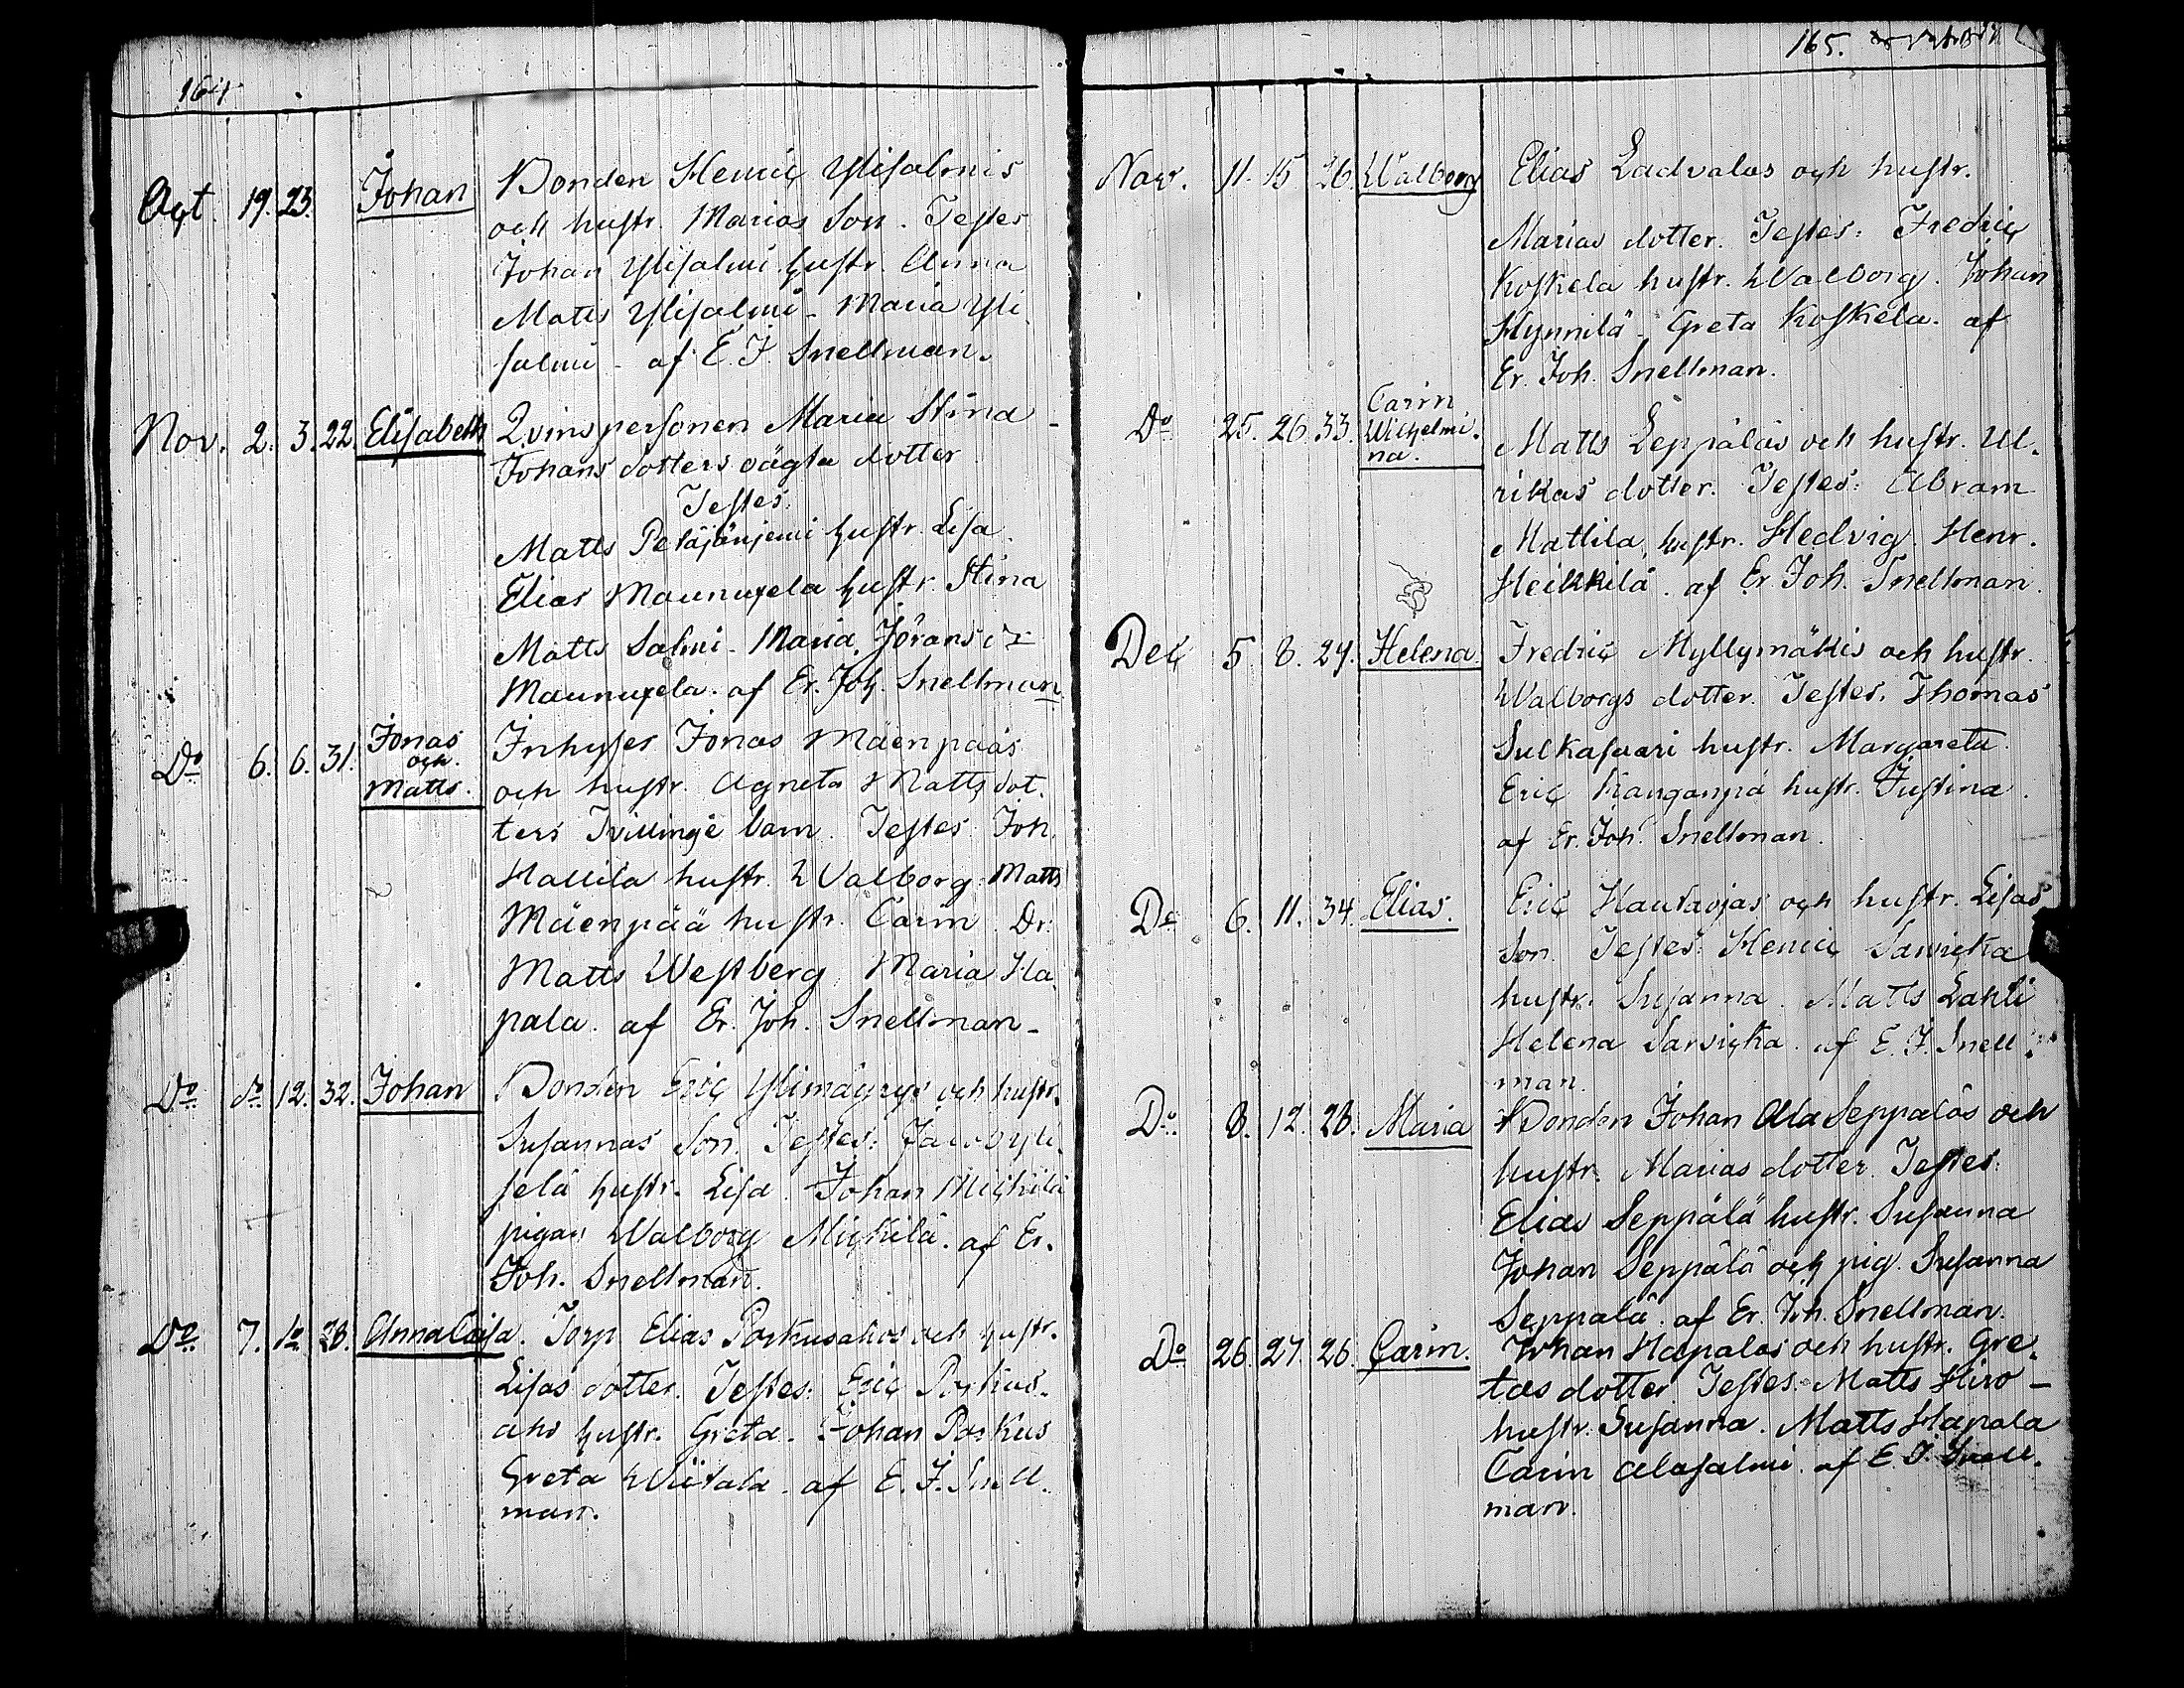 164
Oct. 19. 23. Johan Bonden Henric Ylisalmis
och hustr. Marias Son. Testes
Johan Ylisalmi hustr. Anna
Matts Ylisalmi - Maria Yli
salmi - af E. J. Snellman.
Nov. 2. 3. 22. Elisabeth Qvinspersonen Maria Stina
Johans dotters oägta dotter
Testes.
Matts Petäjäniemi hustr. Lisa.
Elias Maunuxela hustr. Stina
Matts Salmi - Maria Jörans dr
Maunuxela. af Er. Joh. Snellman
Do 6. 6. 31. Jonas och Matts. Inhyses Jonas Mäenpääs
och hustr. Agneta Matts dot.
ters Tvillinge barn. Testes Joh.
Hallila hustr. Walborg. Matts
Mäenpää hustr. Carin Dr.
Matts Westberg Maria Ha
pala. af Er. Joh. Snellman -
Do do 12. 32. Johan Bonden Eric Ylimäyrys och hustr.
Susannas Son. Testes: Jacob Yli
selä hustr. Lisa. Johan Mickilä
pigan Walborg Mickilä. af Er.
Joh. Snellman.
Do 7. 12. 28. Anna Caisa. Torp. Elias Porkusahos och hustr.
Lisas dotter. Testes: Eric Porkus-
aho hustr. Greta. Johan Porkus
Greta Wiitala. af E. J. Snell.
man.
165.
Nov. 11. 15. 26. Walborg Elias Ladvalas och hustr.
Marias dotter. Testes: Fredric
Koskela hustr. Walborg. Johan
Hynnilä - Greta Koskela. af
Er. Joh. Snellman.
Do 25. 26. 33. Carin Wilhelmi. na. Matts Leppäläs och hustr. Ul.
rikas dotter. Testes: Abram
Mattila, hustr. Hedvig. Henr.
Heikkilä. af Er. Joh. Snellman.
Dec 5. 8. 27. Helena Fredric Myllymäkis och hustr.
Walborgs dotter. Testes. Thomas
Sulkasaari hustr. Margareta.
Eric Kanganpä hustr. Justina.
af Er. Joh. Snellman.
Do 6. 11. 34. Elias. Eric Hautaojas och hustr. Lisas
Son. Testes: Henric Sarvicka
hustr. Susanna. Matts Lahti
Helena Sarvicka. af E. J. Snell.
man.
Do 8. 12. 28. Maria Bonden Johan Ala Seppäläs och
hustr. Marias dotter. Testes:
Elias Seppälä hustr. Susanna
Johan Seppälä och pig. Susanna
Seppälä. af Er. Joh. Snellman.
Do 26. 27. 26. Carin. Johan Hapalas och hustr. Gre.
tas dotter Testes. Matts Hiro -
hustr. Susanna. Matts Hapala
Carin Alasalmi. af E. J. Snell.
man.